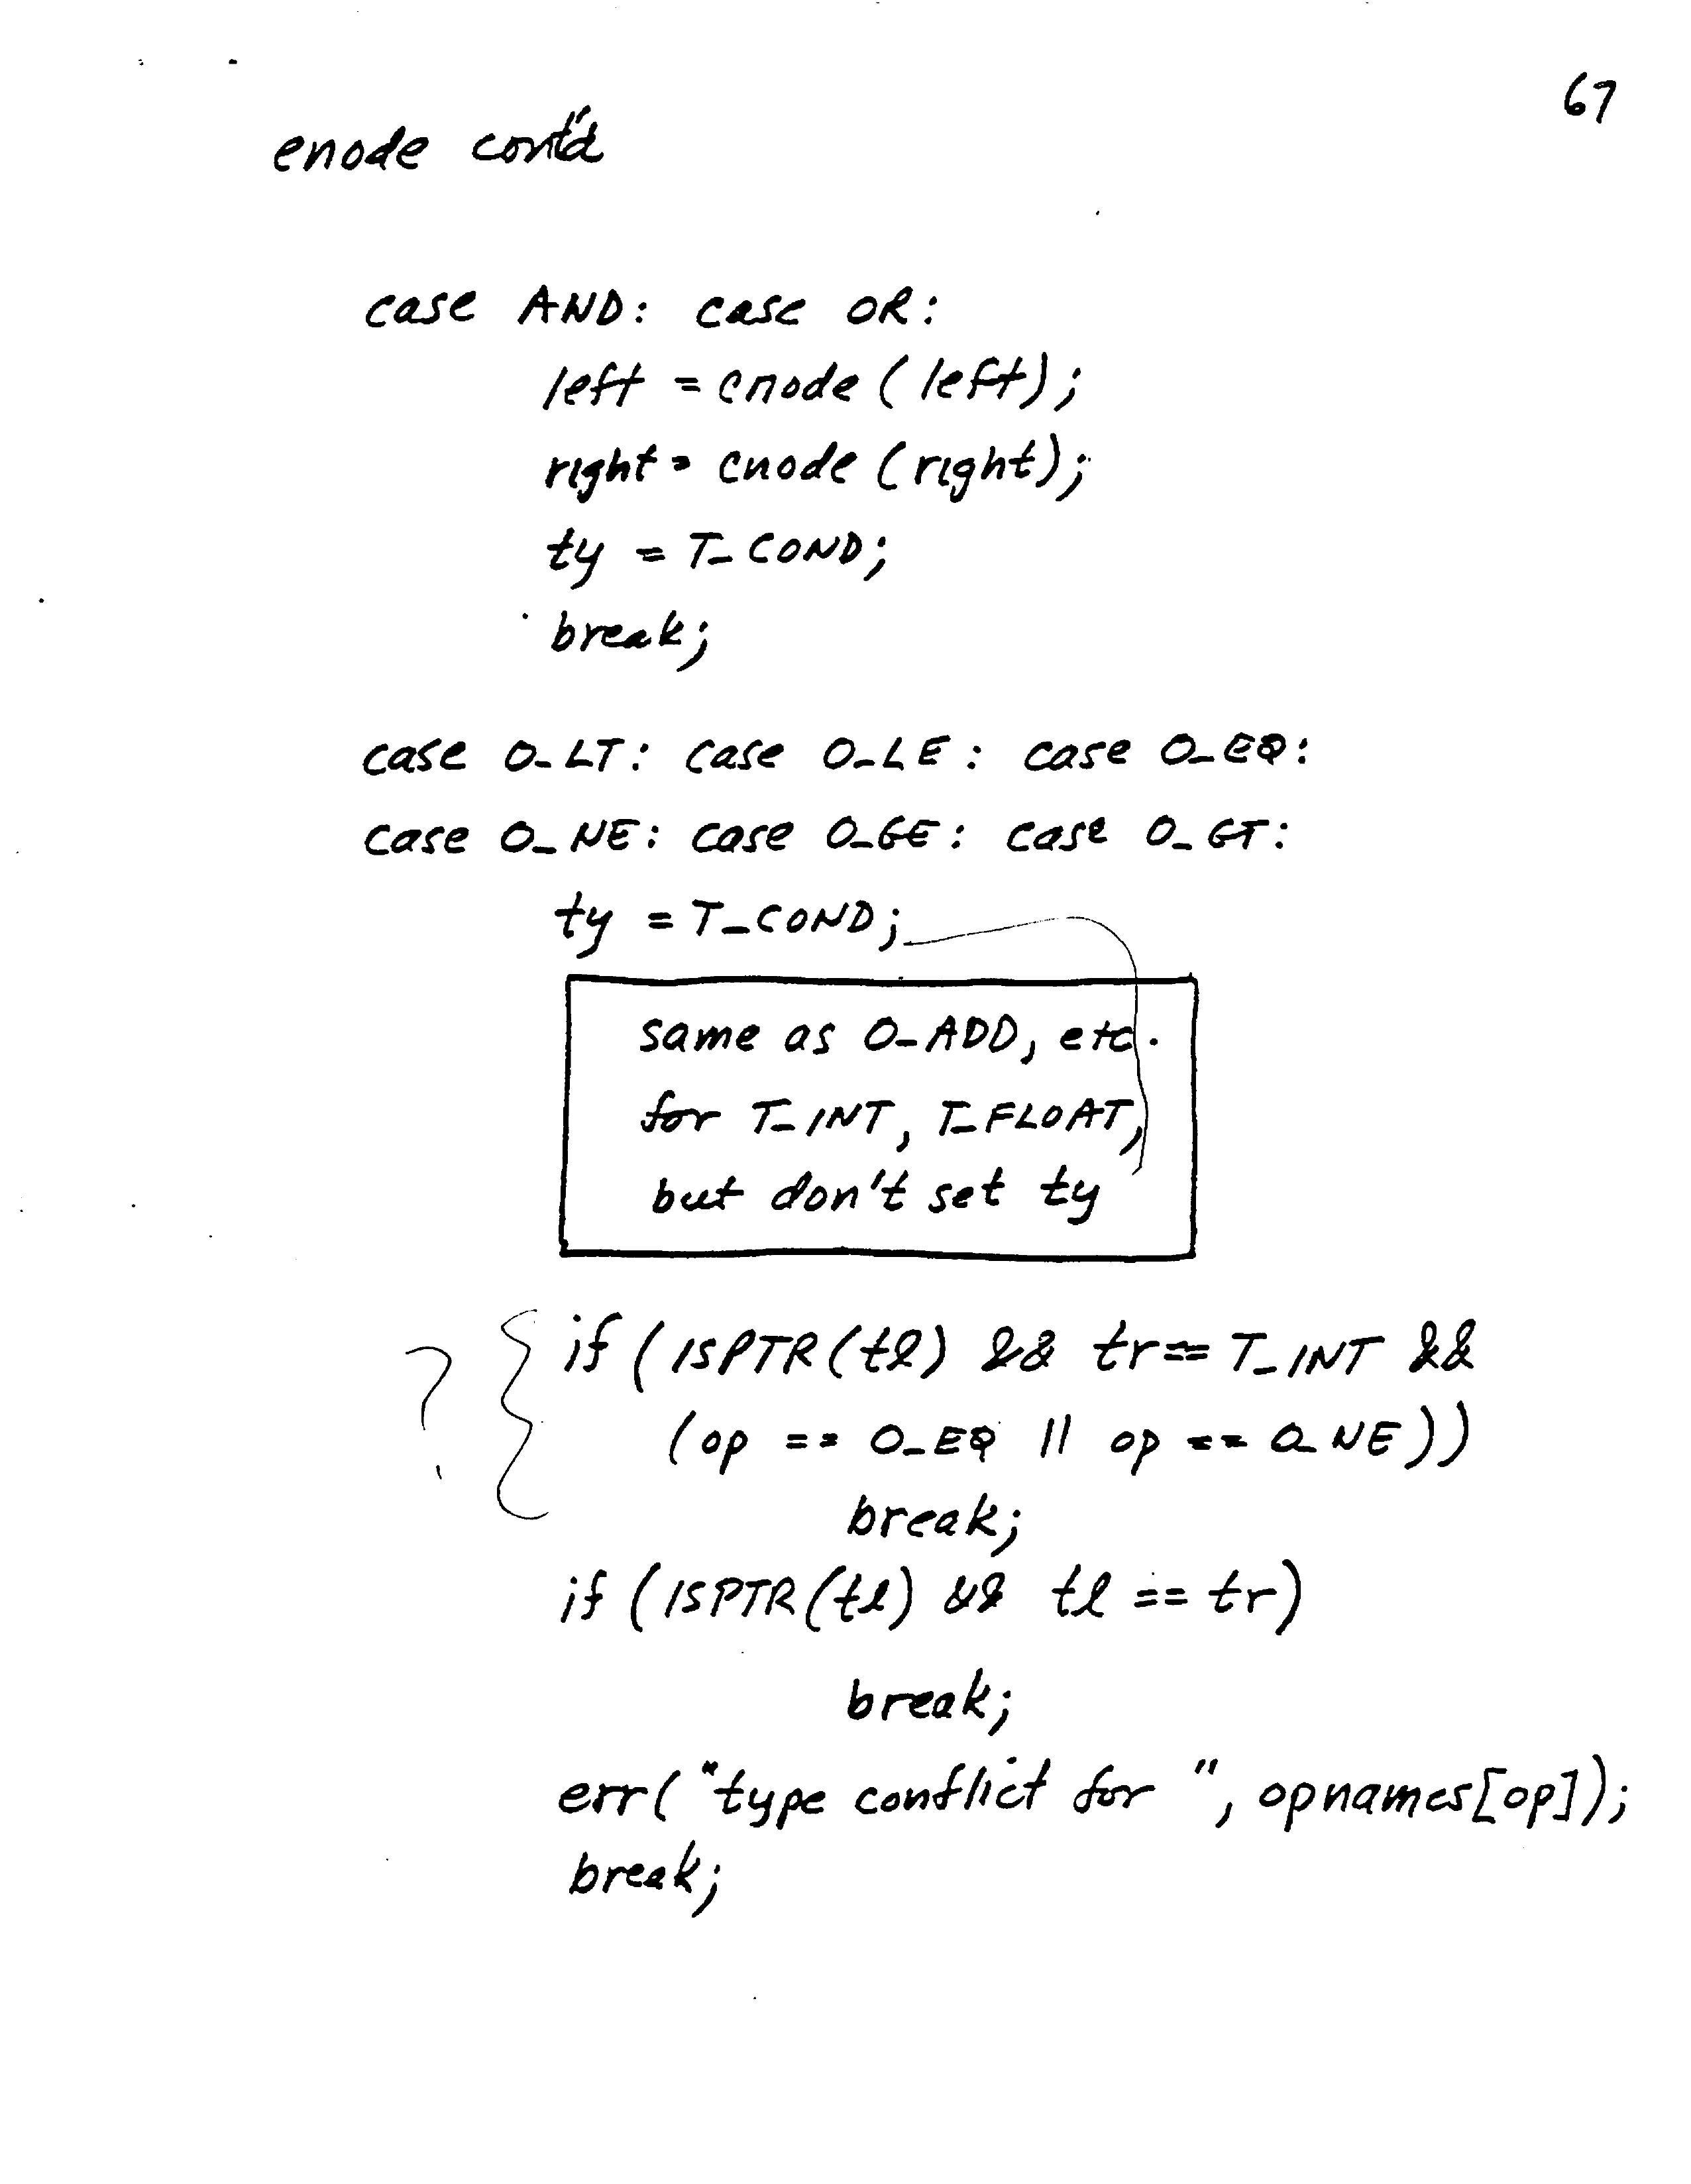 67
enode cont'd
case AND: case OR:
left = cnode (left);
right = cnode (right);
ty = T_COND;
break;
case O_LT: case O_LE: case O_EQ:
case O_NE: case O_GE: case O_GT:
ty = T_COND;
same as O_ADD, etc.
for T_INT, T_FLOAT,
but don't set ty
? { if (ISPTR(tl) && tr == T_INT &&
(op == O_EQ || op == O_NE))
break;
if (ISPTR(tl) && tl == tr)
break;
err("type conflict for ", opnames[op]);
break;